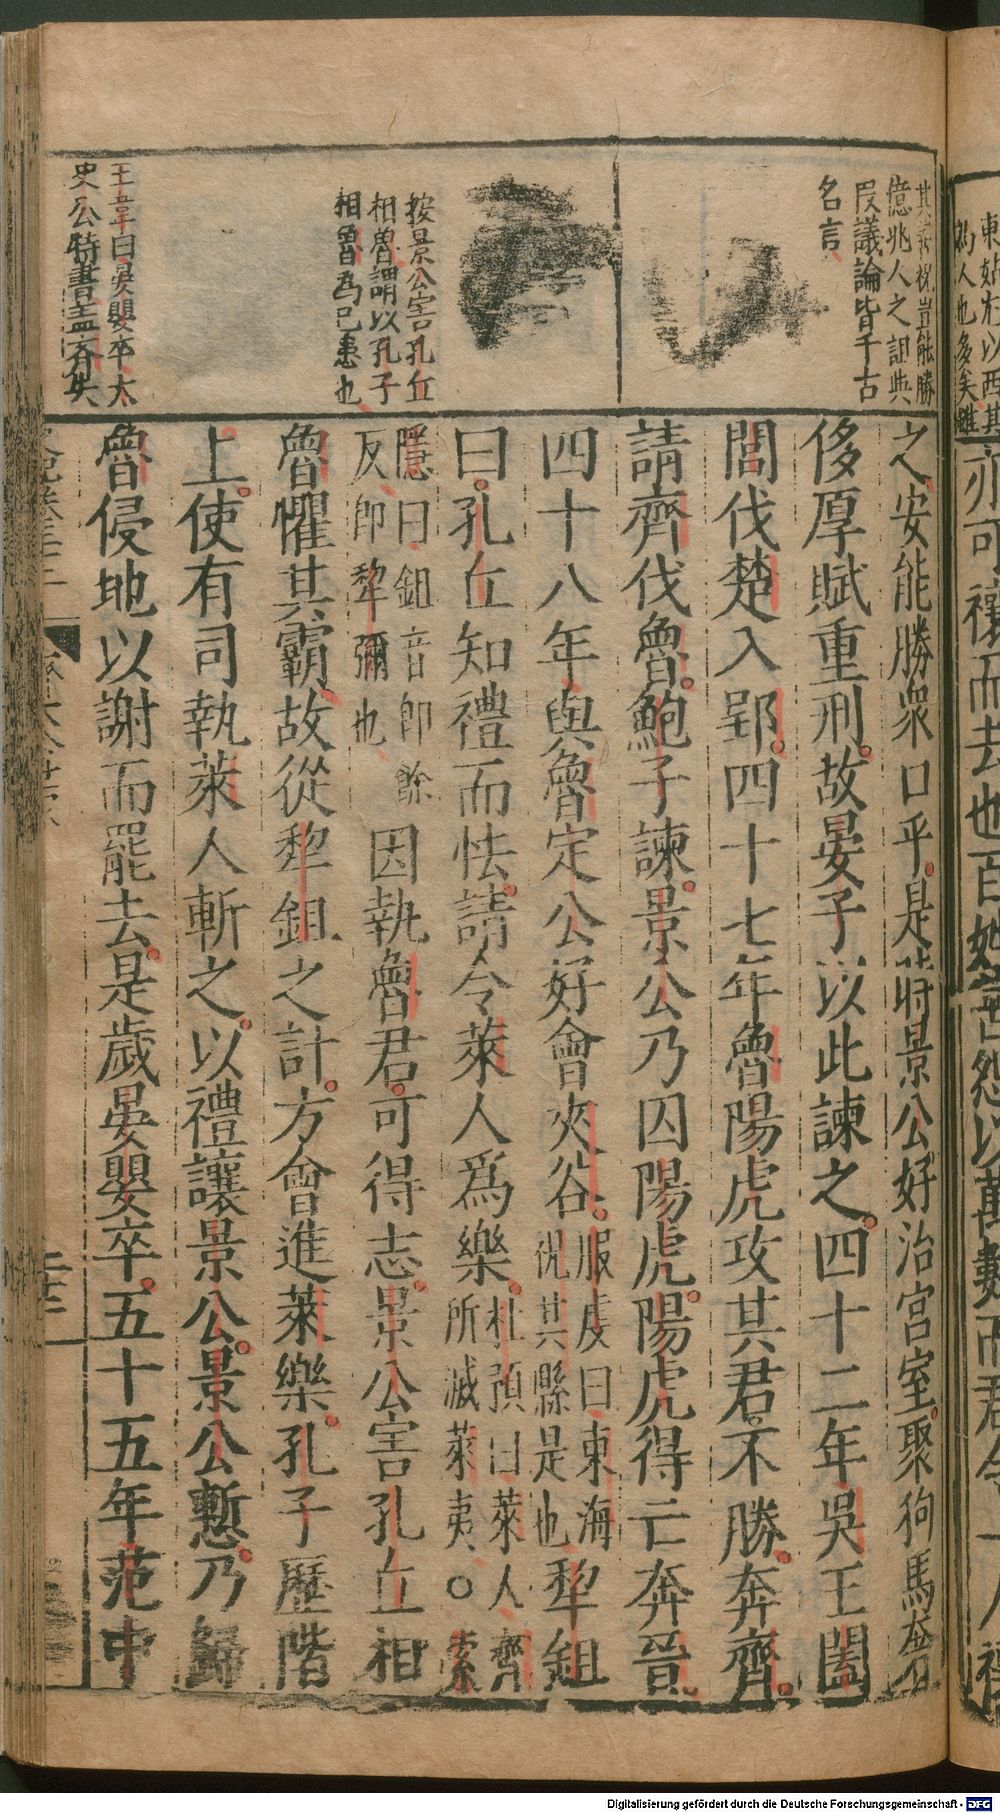 億兆人之詛與
叚議論皆千古
名言
按景公害孔丘
相魯謂以孔子
相魯爲己患也
王韋曰晏嬰卒太
史公特書蓋
之安能勝衆口乎是時景公好治宮室聚狗馬奢
侈厚賦重刑故晏子以此諫之四十二年吳王闔
閭伐楚入郢四十七年魯陽虎攻其君不勝奔齊
請齊伐魯鮑子諫景公乃囚陽虎陽虎得亡奔晉
四十八年與魯定公好會夾谷
服虔曰東海
祝其縣是也
犂鉏
曰孔丘知禮而怯請令萊人爲樂
杜預曰萊人齊
所滅萊夷〇索
隱曰鉏音即餘
反即犂彌也
因執魯君可得志景公害孔丘相
魯懼其霸故從犂鉏之計方會進萊樂孔子歷階
上使有司執萊人斬之以禮讓景公景公慙乃歸
魯侵地以謝而罷去是歲晏嬰卒五十五年范中
二十二
Digitalisierung gefördert durch die Deutsche Forschungsgemeinschaft - DFG